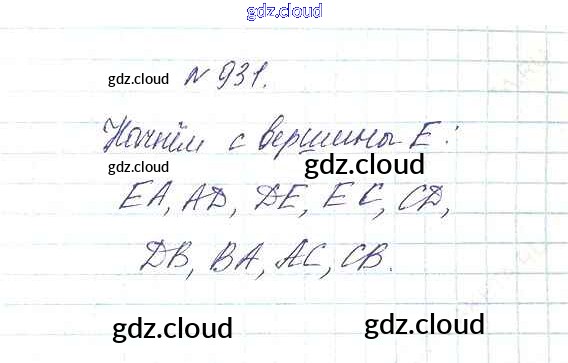 gdz.cloud
gdz.cloud
gdz.cloud № 931.
Начнём с вершины E:
gdz.cloud gdz.cloud
EA, AD, DE, EC, CD,
DB, BA, AC, CB.
gdz.cloud gdz.cloud